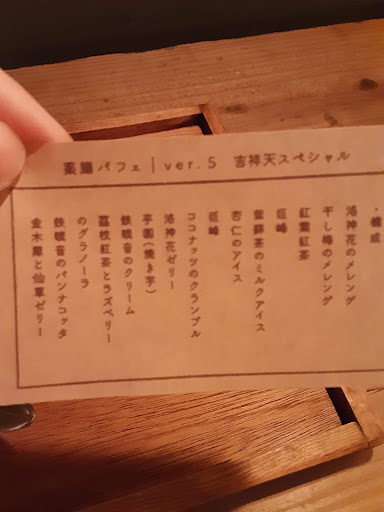 薬膳パフェ｜ver.5　吉祥天スペシャル
・構成
洛神花のメレンゲ
干し梅のメレンゲ
紅葉紅茶
巨峰
紫蘇茶のミルクアイス
杏仁のアイス
巨峰
ココナッツのクランブル
洛神花ゼリー
芋圓(焼き芋)
鉄観音のクリーム
荔枝紅茶とラズベリー
のグラノーラ
鉄観音のパンナコッタ
金木犀と仙草ゼリー